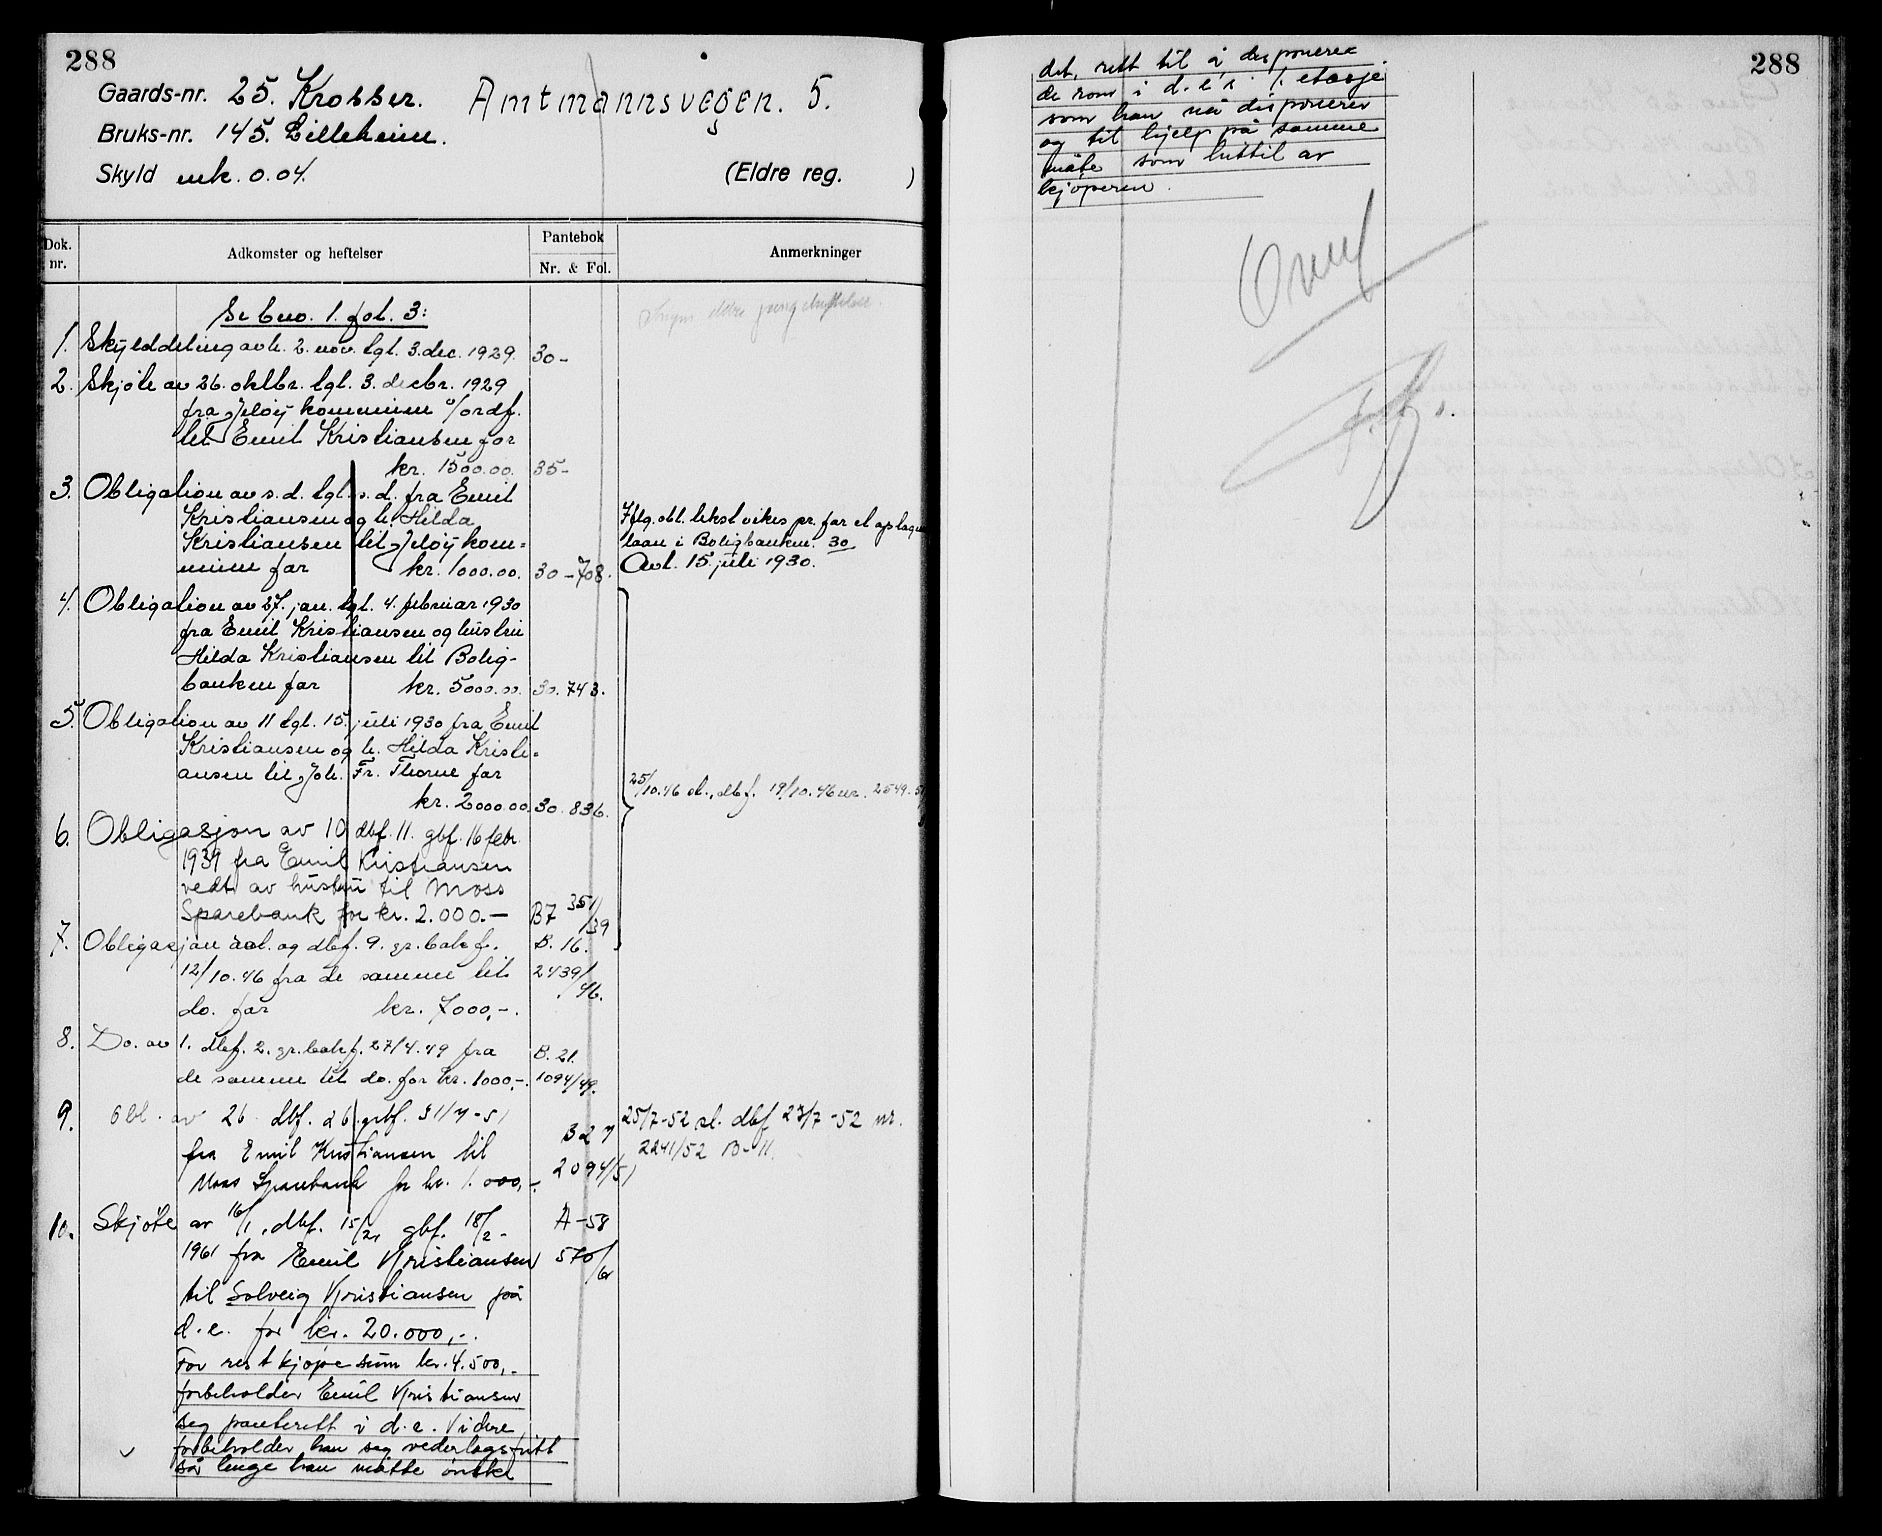 288
Gaards-nr. 25. Krosser. Amtmannsvegen. 5.
Bruks-nr. 145. Lilleheim.
Skyld mk. 0.04. (Eldre reg. )
Dok. nr. Adkomster og heftelser Pantebok Nr. & Fol. Anmerkninger
Se bno. 1. fol. 3:
1. Skylddeling avh. 2. nov. tgl. 3. dec. 1929. 30-
2. Skjøte av 26. oktbr. tgl. 3. decbr. 1929
fra Jeløy kommune v/ordf.
til Emil Kristiansen for
kr. 1500.00. 35-
3. Obligation av s.d. tgl. s.d. fra Emil
Kristiansen og h. Hilda
Kristiansen til Jeløy kom=
mune for kr. 1000.00. 30-708.
Iflg. obl. tekst vikes pr. for et
laan i Boligbanken. 30
Avl. 15. juli 1930.
4. Obligation av 27. jan. tgl. 4. februar 1930
fra Emil Kristiansen og hustru
Hilda Kristiansen til Bolig-
banken for kr. 5000.00. 30. 743.
5. Obligation av 11 tgl. 15. juli 1930 fra Emil
Kristiansen og h. Hilda Kristi=
ansen til Joh. Fr. Thorne for
kr. 2000.00. 30. 836.
25/10.46 sl., dbf. 19/10.46 nr. 2549.
6. Obligasjon av 10 dbf. 11. gbf. 16 febr.
1939 fra Emil Kristiansen
vedt. av hustru til Moss
Sparebank for kr. 2.000.— B7 351/39
7. Obligasjon avl. og dbf. 9. gr.bokf. B. 16.
12/10.46 fra de samme til 2439/46.
do. for kr. 7000,-.
8. Do. av 1. dbf. 2. gr.bokf. 27/4.49 fra B. 21.
de samme til do. for kr. 1000,-. 1094/49.
9. Obl. av 26. dbf. 26. grbf. 31/7-51
fra Emil Kristiansen til B27
Moss Sparebank for kr. 1.000,-. 2094/51
25/7-52 sl. dbf 23/7-52 nr.
2241/52 B-11.
10. Skjøte av 16/1, dbf. 15/2, gbf. 18/2- A-58
1961 fra Emil Kristiansen 570/61
til Solveig Kristiansen på
d.e. for kr. 20.000,-.
For rest kjøpesum kr. 4.500,-
forbeholder Emil Kristiansen
seg panterett i d.e. Videre
forbeholder han seg vederlagsfritt
så lenge han måtte ønske
288
det, rett til å disponere
de rom i d.e's 1. etasje
som han nå disponerer
og til hjelp på samme
måte som hittil av
kjøperen.